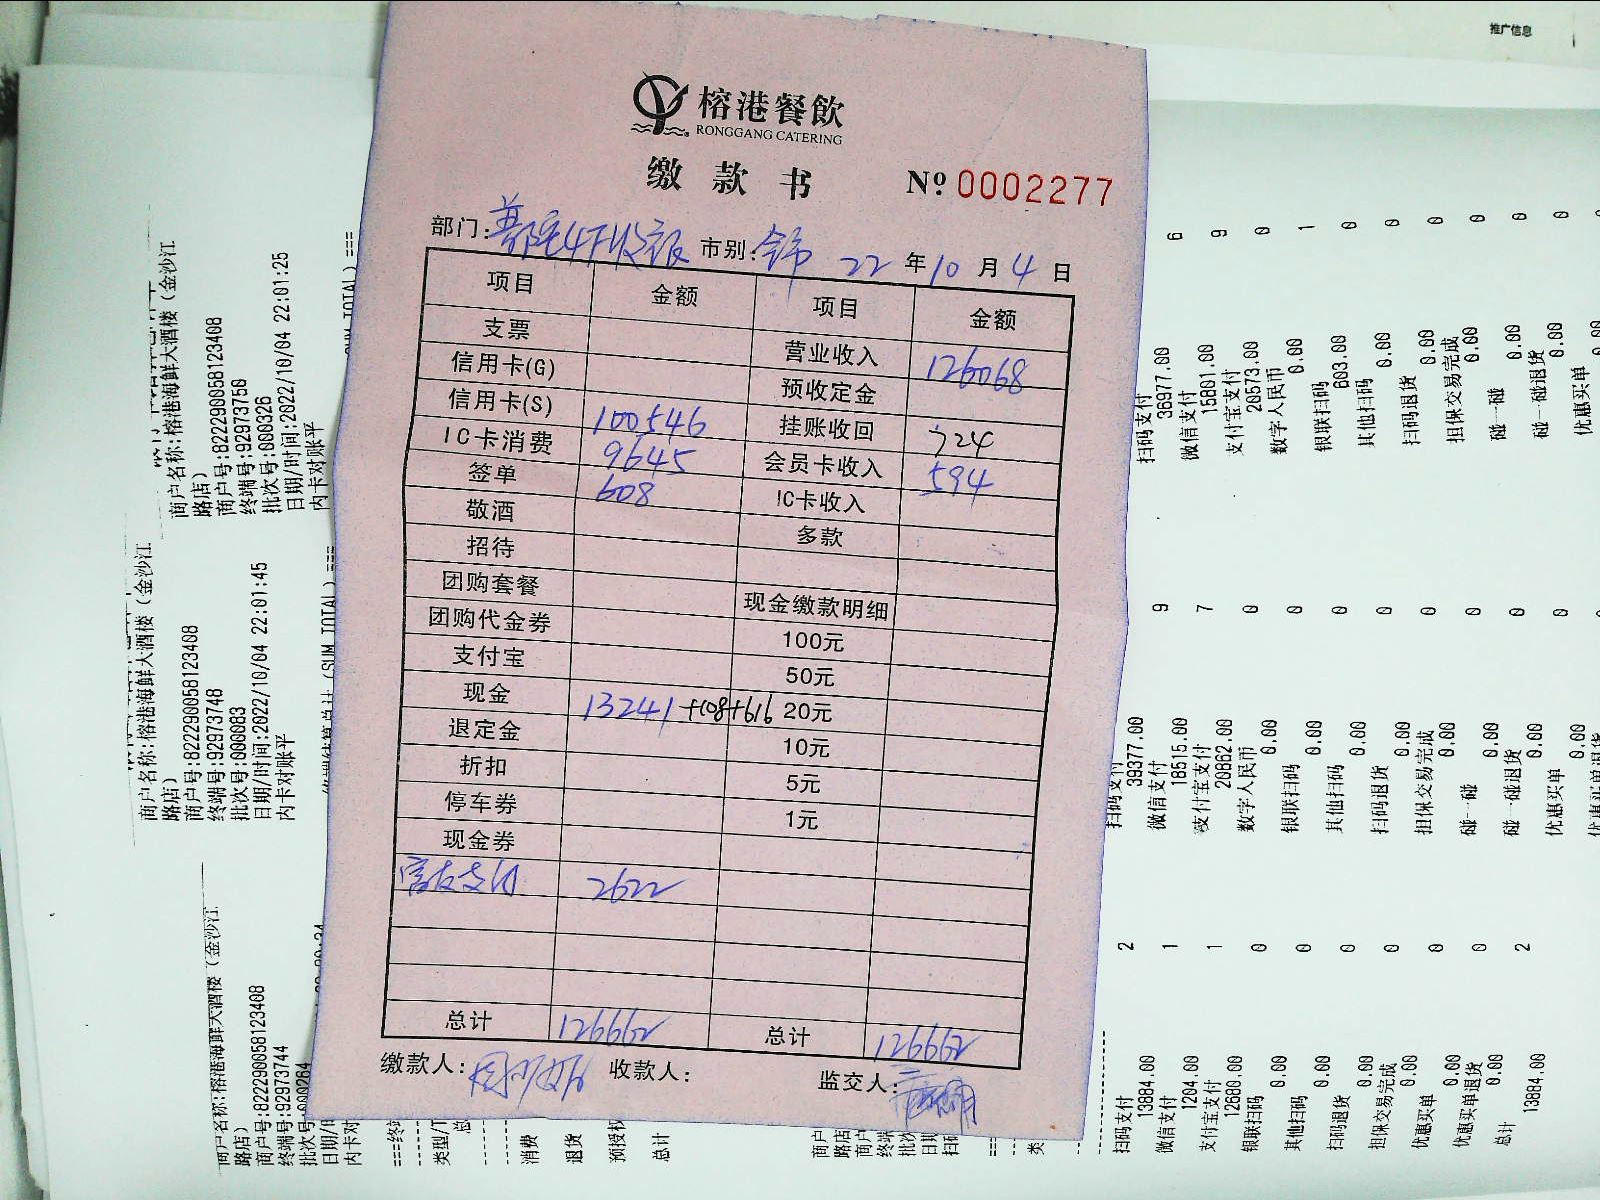 推广信息
榕港餐飲
RONGGANG CATERING
缴款书
№ 0002277
部门: 普陀4F收银 市别: 全市 22 年 10 月 4 日
项目 金额 项目 金额
支票 营业收入 126068
信用卡(G) 预收定金
信用卡(S) 100546 挂账收回 724
IC卡消费 9645 会员卡收入 594
签单 608 IC卡收入
敬酒 多款
招待
团购套餐 现金缴款明细
团购代金券 100元
支付宝 50元
现金 13241 +108+616 20元
退定金 10元
折扣 5元
停车券 1元
现金券
2622
总计 126662 总计 126662
缴款人: 收款人: 监交人:
商户名称:榕港海鲜大酒楼(金沙江
路店)
商户号:822290058123408
终端号:92973750
批次号:000326
日期/时间:2022/10/04 22:01:25
内卡对账平
商户名称:榕港海鲜大酒楼(金沙江
路店)
商户号:822290058123408
终端号:92973748
批次号:000083
日期/时间:2022/10/04 22:01:45
内卡对账平
商户名称:榕港海鲜大酒楼(金沙江
路店)
商户号:822290058123408
终端号:92973744
批次号:000264
内卡对
消费
退货
预授权
总计
扫码支付 6
36977.00
微信支付 9
15801.00
支付宝支付 0
20573.00
数字人民币 1
0.00
银联扫码 0
603.00
其他扫码 0
0.00
扫码退货 0
0.00
担保交易完成 0
0.00
碰一碰 0
0.00
碰一碰退货 0
0.00
优惠买单
扫码支付 9
39377.00
微信支付 7
18515.00
支付宝支付 0
20862.00
数字人民币 0
0.00
银联扫码 0
0.00
其他扫码 0
0.00
扫码退货 0
0.00
担保交易完成 0
0.00
碰一碰 0
0.00
碰一碰退货 0
0.00
优惠买单
0.00
扫码支付 2
13884.00
微信支付 1
1204.00
支付宝支付 1
12680.00
银联扫码 0
0.00
其他扫码 0
0.00
扫码退货 0
0.00
担保交易完成 0
0.00
优惠买单 0
0.00
优惠买单退货 0
0.00
总计 2
13884.00